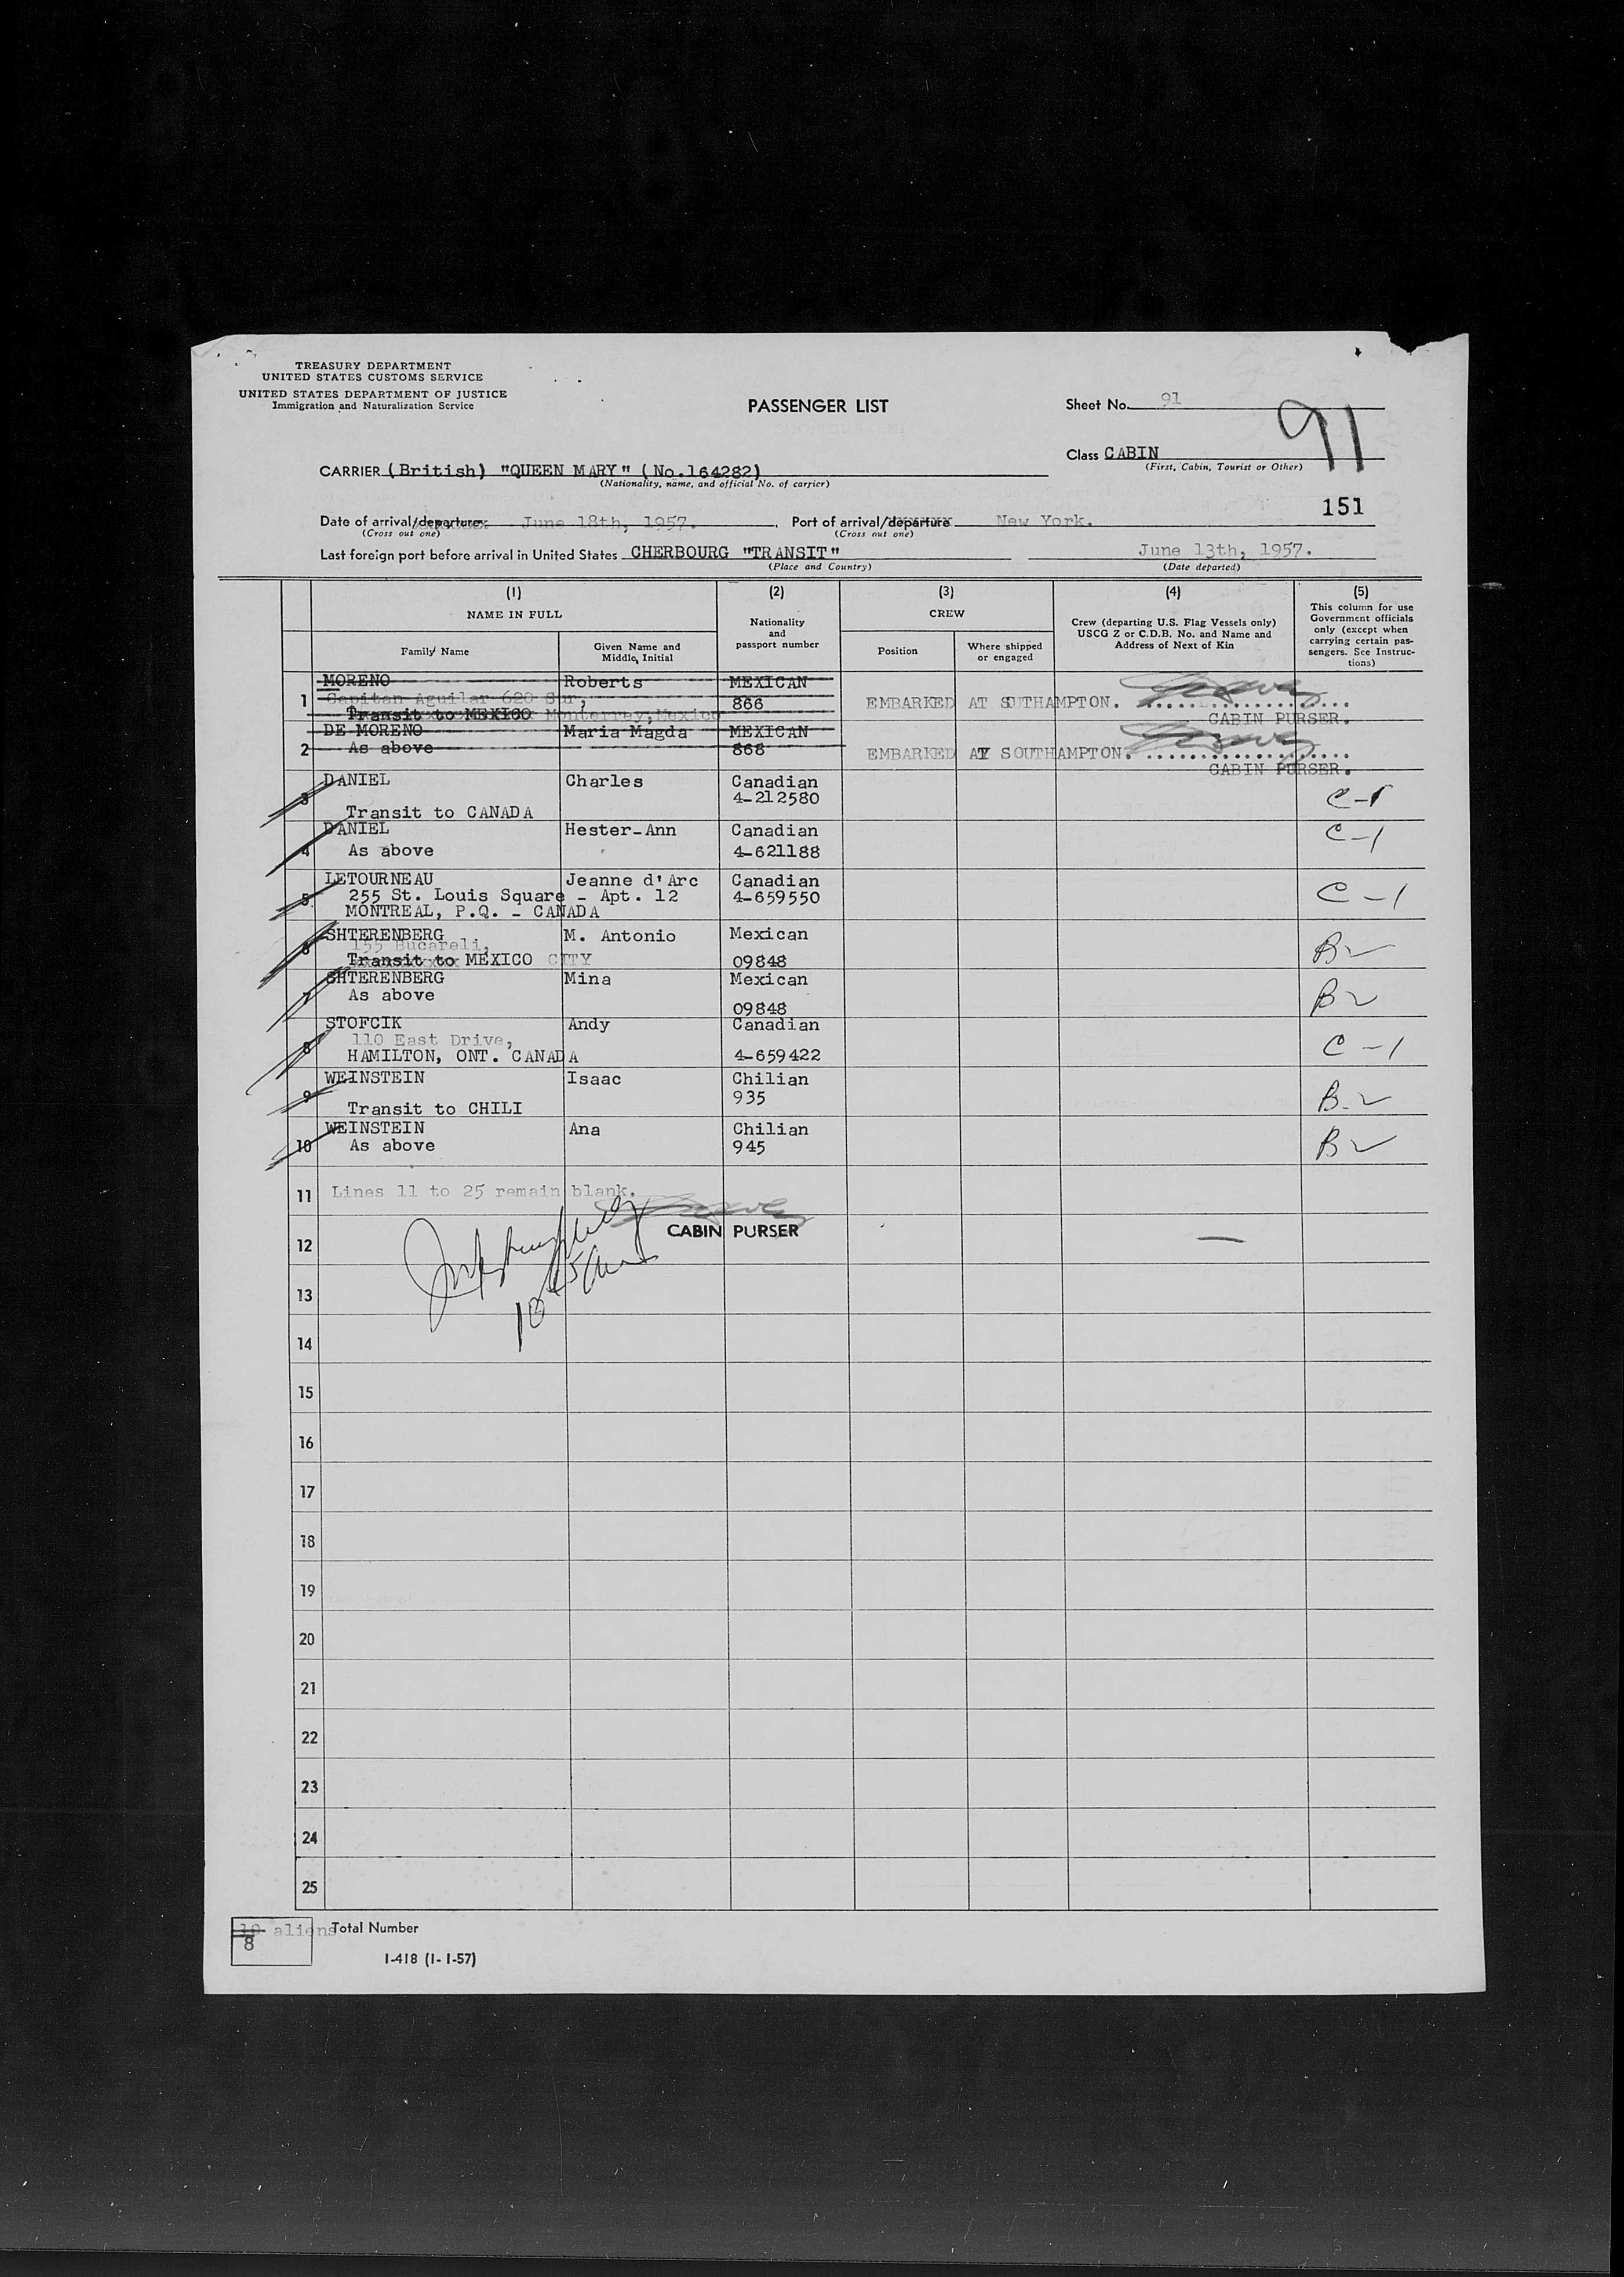 TREASURY DEPARTMENT
UNITED STATES CUSTOMS SERVICE
UNITED STATES DEPARTMENT OF JUSTICE
Immigration and Naturalization Service
PASSENGER LIST
Sheet No. 91
91
Class CABIN
(First, Cabin, Tourist or Other)
CARRIER (British) "QUEEN MARY" (No.164282)
(Nationality, name, and official No. of carrier)
151
Date of arrival/departure June 18th, 1957. , Port of arrival/departure New York.
(Cross out one) (Cross out one)
Last foreign port before arrival in United States CHERBOURG "TRANSIT" June 13th, 1957.
(Place and Country) (Date departed)
(1) (2) (3) (4) (5)
NAME IN FULL
Nationality and passport number
CREW
Crew (departing U.S. Flag Vessels only)
USCG Z or C.D.B. No. and Name and
Address of Next of Kin
This column for use
Government officials
only (except when
carrying certain pas-
sengers. See Instruc-
tions)
Family Name
Given Name and
Middle Initial
Position
Where shipped
or engaged
1 MORENO Roberts MEXICAN
Capitan Aguilar 620 Sur, 866 EMBARKED AT SOUTHAMPTON.
Transit to MEXICO Monterrey, Mexico CABIN PURSER.
2 DE MORENO Maria Magda MEXICAN
As above 868 EMBARKED AT SOUTHAMPTON.
CABIN PURSER.
3 DANIEL Charles Canadian
4-212580 C-1
Transit to CANADA
4 DANIEL Hester-Ann Canadian C-1
As above 4-621188
5 LETOURNEAU Jeanne d'Arc Canadian
255 St. Louis Square - Apt. 12 4-659550 C-1
MONTREAL, P.Q. - CANADA
6 SHTERENBERG M. Antonio Mexican
155 Bucareli, B2
Transit to MEXICO CITY 09848
7 SHTERENBERG Mina Mexican
As above B2
09848
8 STOFCIK Andy Canadian
110 East Drive, C-1
HAMILTON, ONT. CANADA 4-659422
9 WEINSTEIN Isaac Chilian
935 B-2
Transit to CHILI
10 WEINSTEIN Ana Chilian
As above 945 B2
11 Lines 11 to 25 remain blank.
CABIN PURSER
12
13
14
15
16
17
18
19
20
21
22
23
24
25
10 aliens Total Number
8
I-418 (1-1-57)